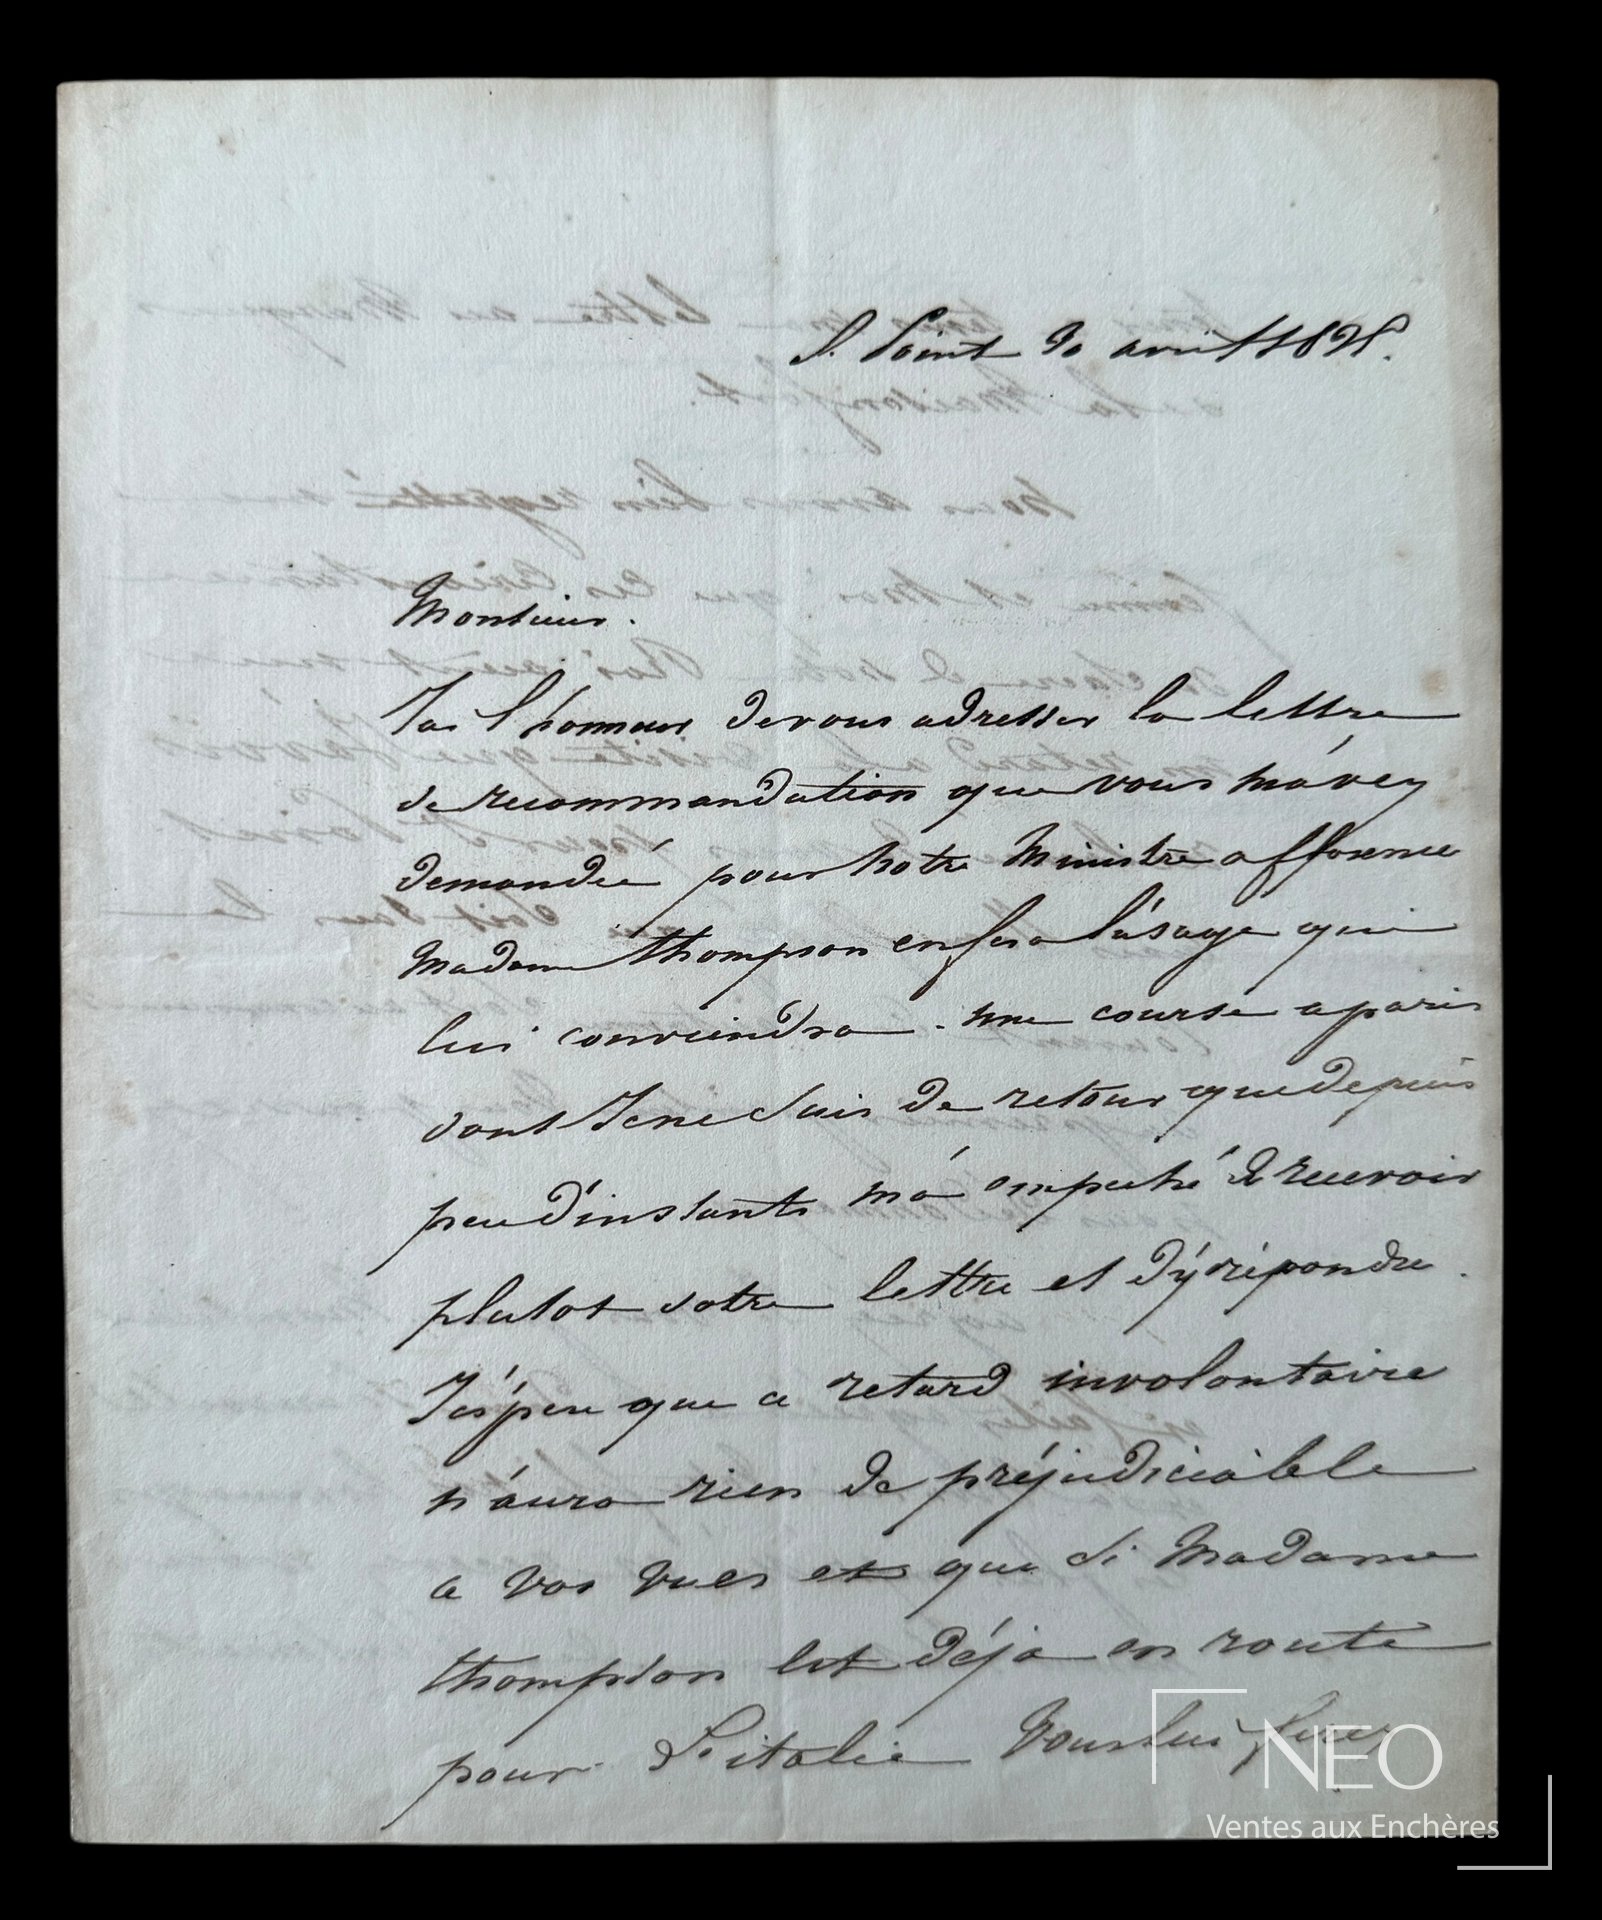 S. Point 30 avril 1825.
Monsieur.
J'ai l'honneur de vous adresser la lettre
de recommandation que vous m'avez
demandée pour notre Ministre a florence
Madame thompson en fera l'usage qui
lui conviendra. une course a paris
dont Je ne suis de retour que depuis
peu d'instants m'a empeché de recevoir
plutot votre lettre et d'y répondre.
J'espere que ce retard involontaire
n'aura rien de préjudiciable
a vos vues et que si Madame
thompson est déja en route
pour L'italie Vous lui ferez
NEO
Ventes aux Enchères